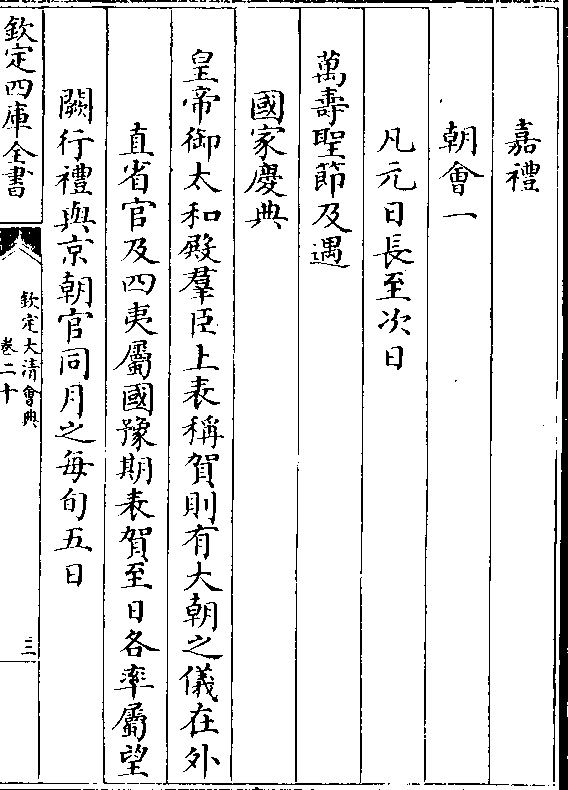 嘉禮
朝會一
凡元日長至次日
萬壽聖節及遇
國家慶典
皇帝御太和殿羣臣上表稱賀則有大朝之儀在外
直省官及四夷屬國豫期表賀至日各率屬望
闕行禮與京朝官同月之每旬五日
欽定四庫全書
欽定大清會典
卷二十
三